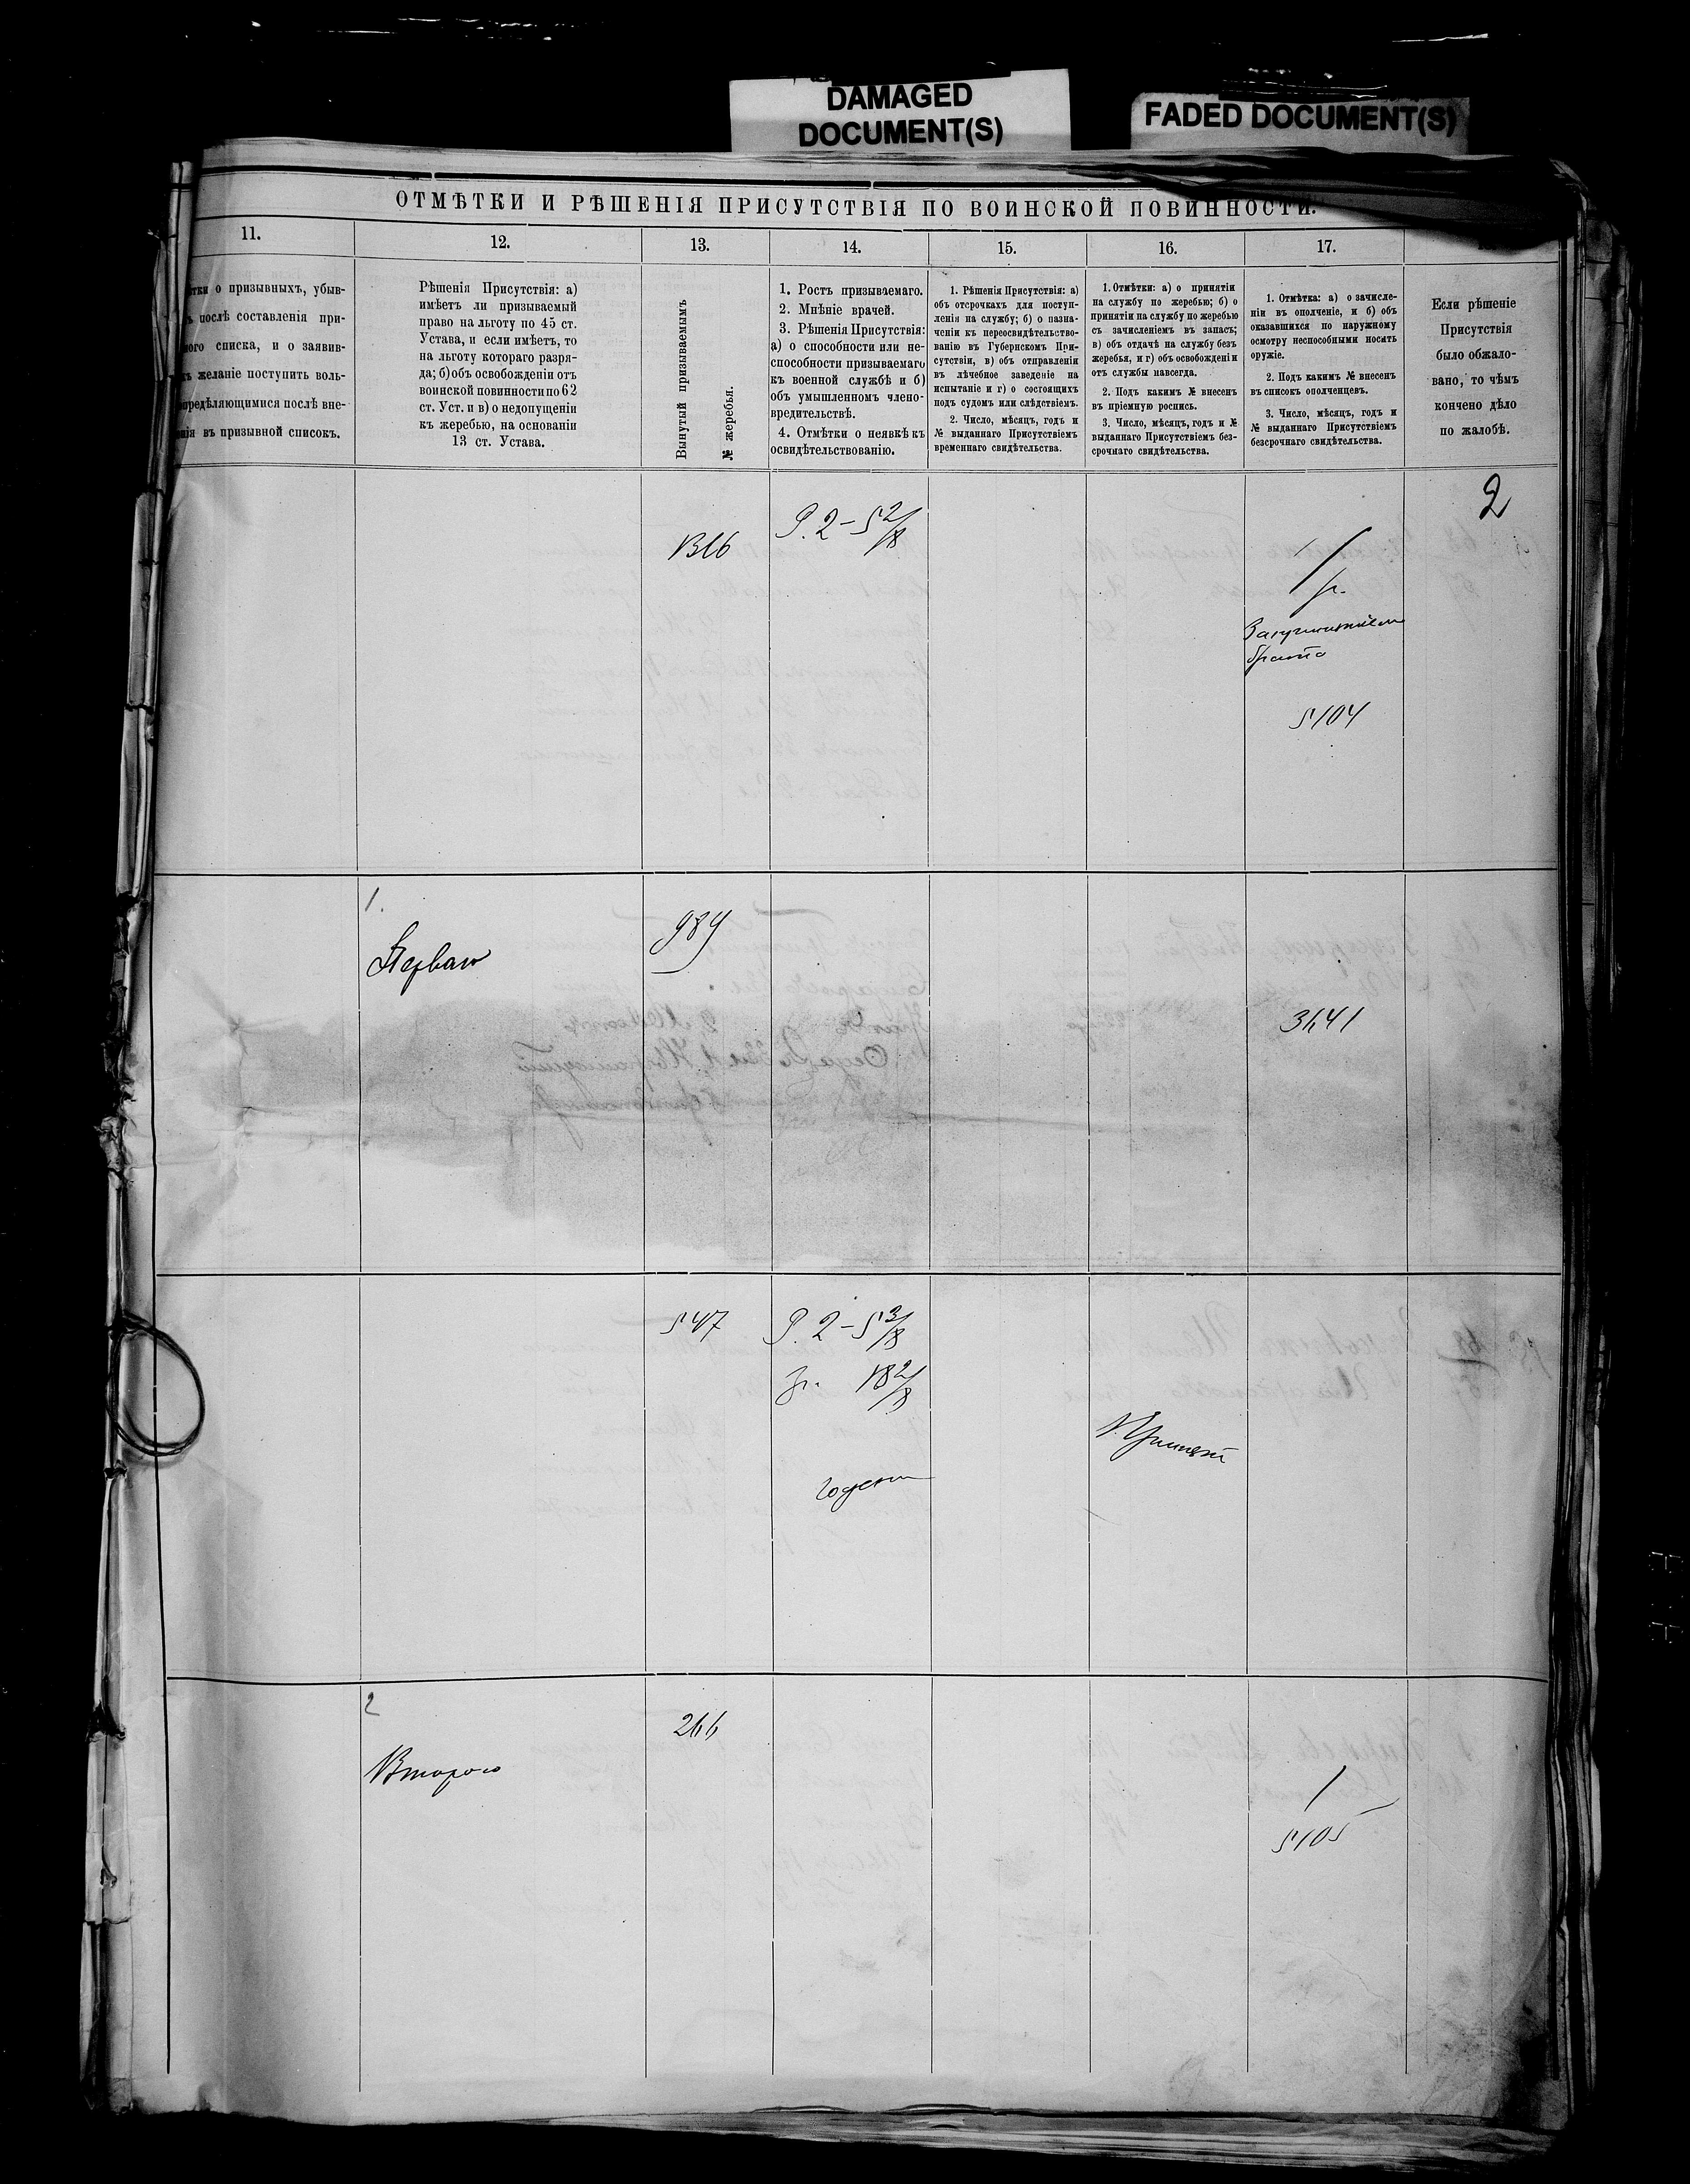 DAMAGED
DOCUMENT(S)
FADED DOCUMENT(S)
ОТМѢТКИ И РѢШЕНІЯ ПРИСУТСТВІЯ ПО ВОИНСКОЙ ПОВИННОСТИ.
11.
12.
13.
14.
15.
16.
17.
о призывныхъ, убыв-
послѣ составленія при-
списка, и о заявив-
желаніе поступить воль-
послѣ вне-
въ призывной списокъ.
Рѣшенія Присутствія: а)
имѣетъ ли призываемый
право на льготу по 45 ст.
Устава, и если имѣетъ, то
на льготу котораго разря-
да; б) объ освобожденіи отъ
воинской повинности по 62
ст. Уст. и в) о недопущеніи
къ жеребью, на основаніи
13 ст. Устава.
Вынутый призываемымъ
№ жеребья.
1. Ростъ призываемаго.
2. Мнѣніе врачей.
3. Рѣшенія Присутствія:
а) о способности или не-
способности призываемаго
къ военной службѣ и б)
объ умышленномъ члено-
вредительствѣ.
4. Отмѣтки о неявкѣ къ
освидѣтельствованію.
1. Рѣшенія Присутствія: а)
объ отсрочкахъ для поступ-
ленія на службу; б) о назна-
ченіи къ переосвидѣтельство-
ванію въ Губернскомъ При-
сутствіи, в) объ отправленіи
въ лѣчебное заведеніе на
испытаніе и г) о состоящихъ
подъ судомъ или слѣдствіемъ.
2. Число, мѣсяцъ, годъ и
№ выданнаго Присутствіемъ
временнаго свидѣтельства.
1. Отмѣтки: а) о принятіи
на службу по жеребью; б) о
принятіи на службу по жеребью
съ зачисленіемъ въ запасъ;
в) объ отдачѣ на службу безъ
жеребья, и г) объ освобожденіи
отъ службы навсегда.
2. Подъ какимъ № внесенъ
въ пріемную роспись.
3. Число, мѣсяцъ, годъ и №
выданнаго Присутствіемъ без-
срочнаго свидѣтельства.
1. Отмѣтка: а) о зачисле-
ніи въ ополченіе, и б) объ
оказавшихся по наружному
осмотру неспособными носить
оружіе.
2. Подъ какимъ № внесенъ
въ списокъ ополченцевъ.
3. Число, мѣсяцъ, годъ и
№ выданнаго Присутствіемъ
безсрочнаго свидѣтельства.
Если рѣшеніе
Присутствія
было обжало-
вано, то чѣмъ
кончено дѣло
по жалобѣ.
2
Р. 2-5 2/8
1
брата
5104
1.
989
3641
547
Р. 2-5 3/8
гр. 18 2/8
2
266
Второго
1
5105